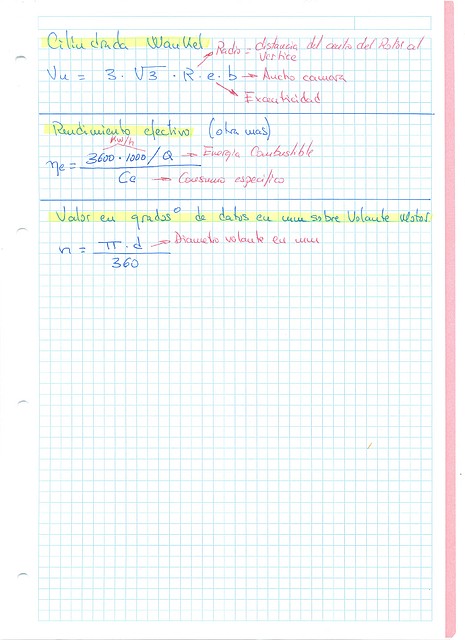 Cilindrada Wankel
Radio = distancia del centro del Rotor al
vértice
Vu = 3 · √3 · R · e · b → Ancho camara
Excentricidad
Rendimiento efectivo (otra mas)
Kw/h
ηe = 3600 · 1000 / Q → Energia Combustible
Ce → Consumo especifico
Valor en grados° de datos en mm sobre Volante Motor
n = π · d → Diametro volante en mm
360